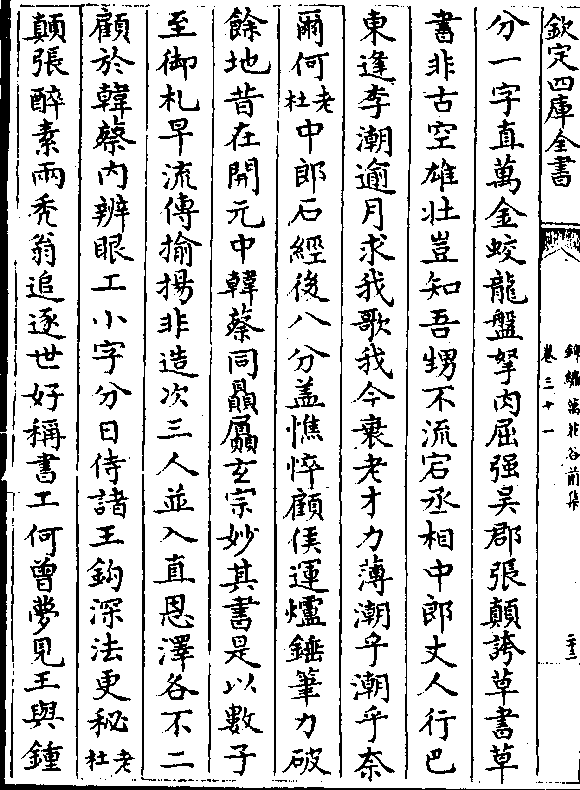 欽定四庫全書
錦編萬花谷前集
卷三十一
二十三
分一字直萬金蛟龍盤拏肉屈强吴郡張顛誇草書草
書非古空雄壮豈知吾甥不流宕丞相中郎丈人行巴
東逢李潮逾月求我歌我今衰老才力薄潮乎潮乎奈
爾何老杜中郎石經後八分盖憔悴顧侯運爐錘筆力破
餘地昔在開元中韓蔡同贔屭玄宗妙其書是以數子
至御札早流傳揄揚非造次三人並入直恩澤各不二
顧於韓蔡内辨眼工小字分日侍諸王鈎深法更秘老杜
顛張醉素兩秃翁追逐世好稱書工何曾夢見王與鍾